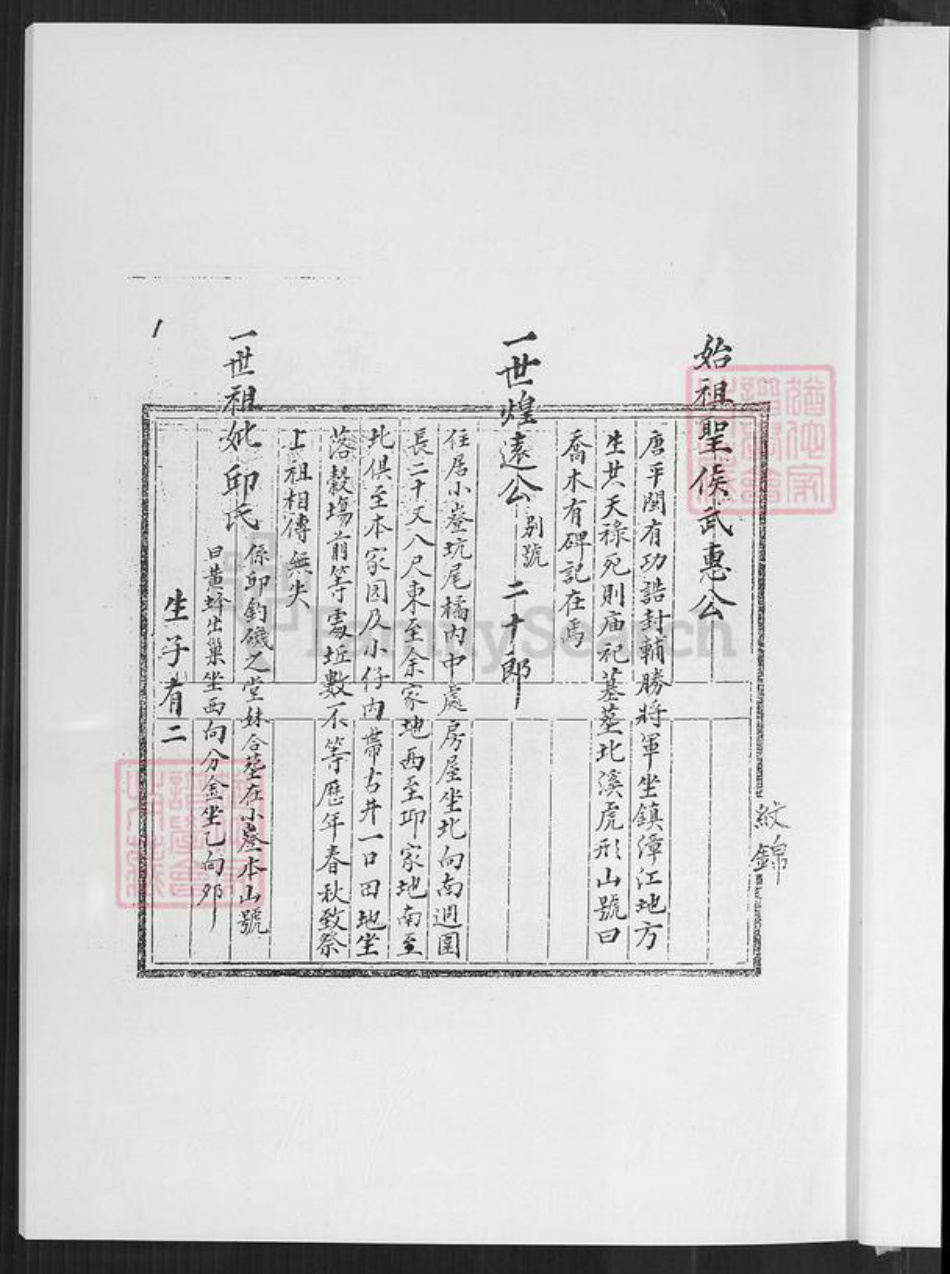 始祖聖侯武惠公
唐平閩有功誥封輔勝將軍坐鎮漳江地方
生共天祿死則庙祀墓塟北溪虎形山號曰
喬木有碑記在焉
一世煌遠公 別號 二十郎
住居小嶝坑尾橘內中處房屋坐北向南週圍
長二十丈八尺東至余家地西至邱家地南至
北俱至本家园及小仔內帶古井一口田地坐
落穀塲前等處坵數不等歷年春秋致祭
上祖相傳無失
一世祖妣邱氏
係邱釣磯之堂妹合塟在小嶝本山號
曰黃蜂出巢坐西向分金坐乙向卯
生子有二
1
紋錦
FamilySearch